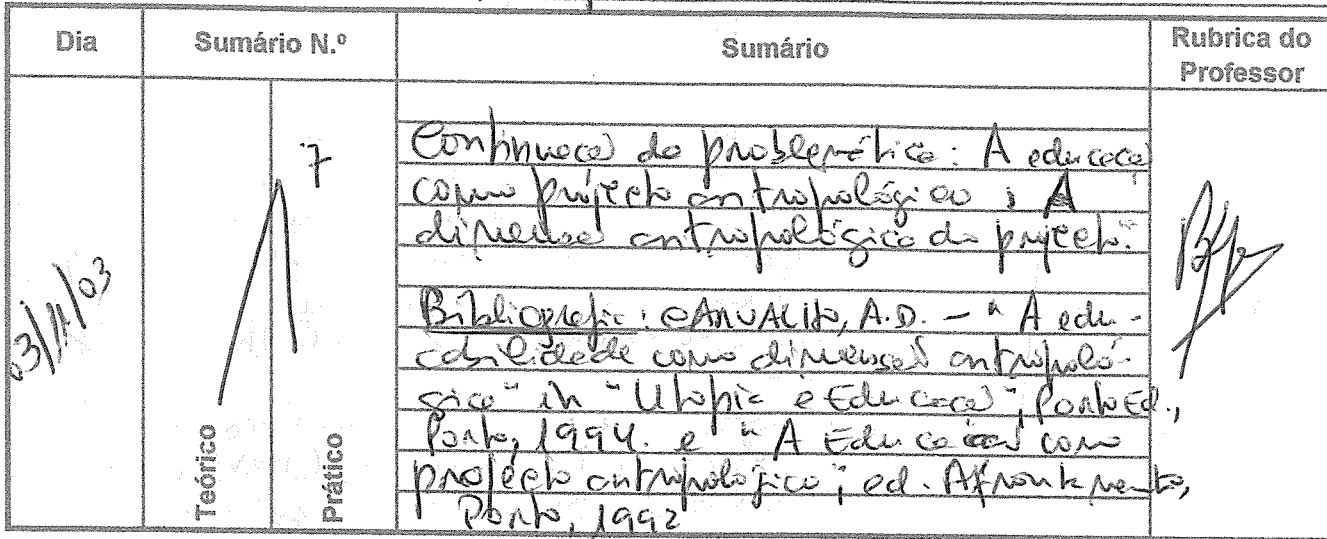 Dia Sumário N.º Sumário Rubrica do Professor
7
03/11/03
Teórico
Prático
Continuação da problemática: A educação
como projecto antropológico; A
dimensão antropológica do projecto.
Bibliografia: CARVALHO, A.D. - "A edu-
cabilidade como dimensão antropoló-
gica" in "Utopia e Educação", Porto Ed.,
Porto, 1994. e "A Educação como
projecto antropológico", ed. Afrontamento,
Porto, 1992